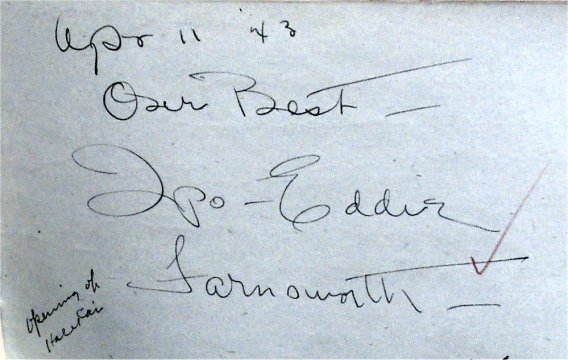 Apr 11 '43
Our Best —
Ipo - Eddie
Farnsworth —
Opening of
Hale Kai